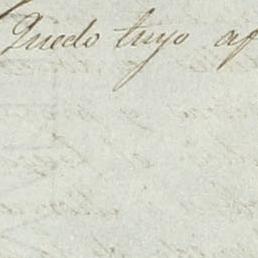 Quedo tuyo af